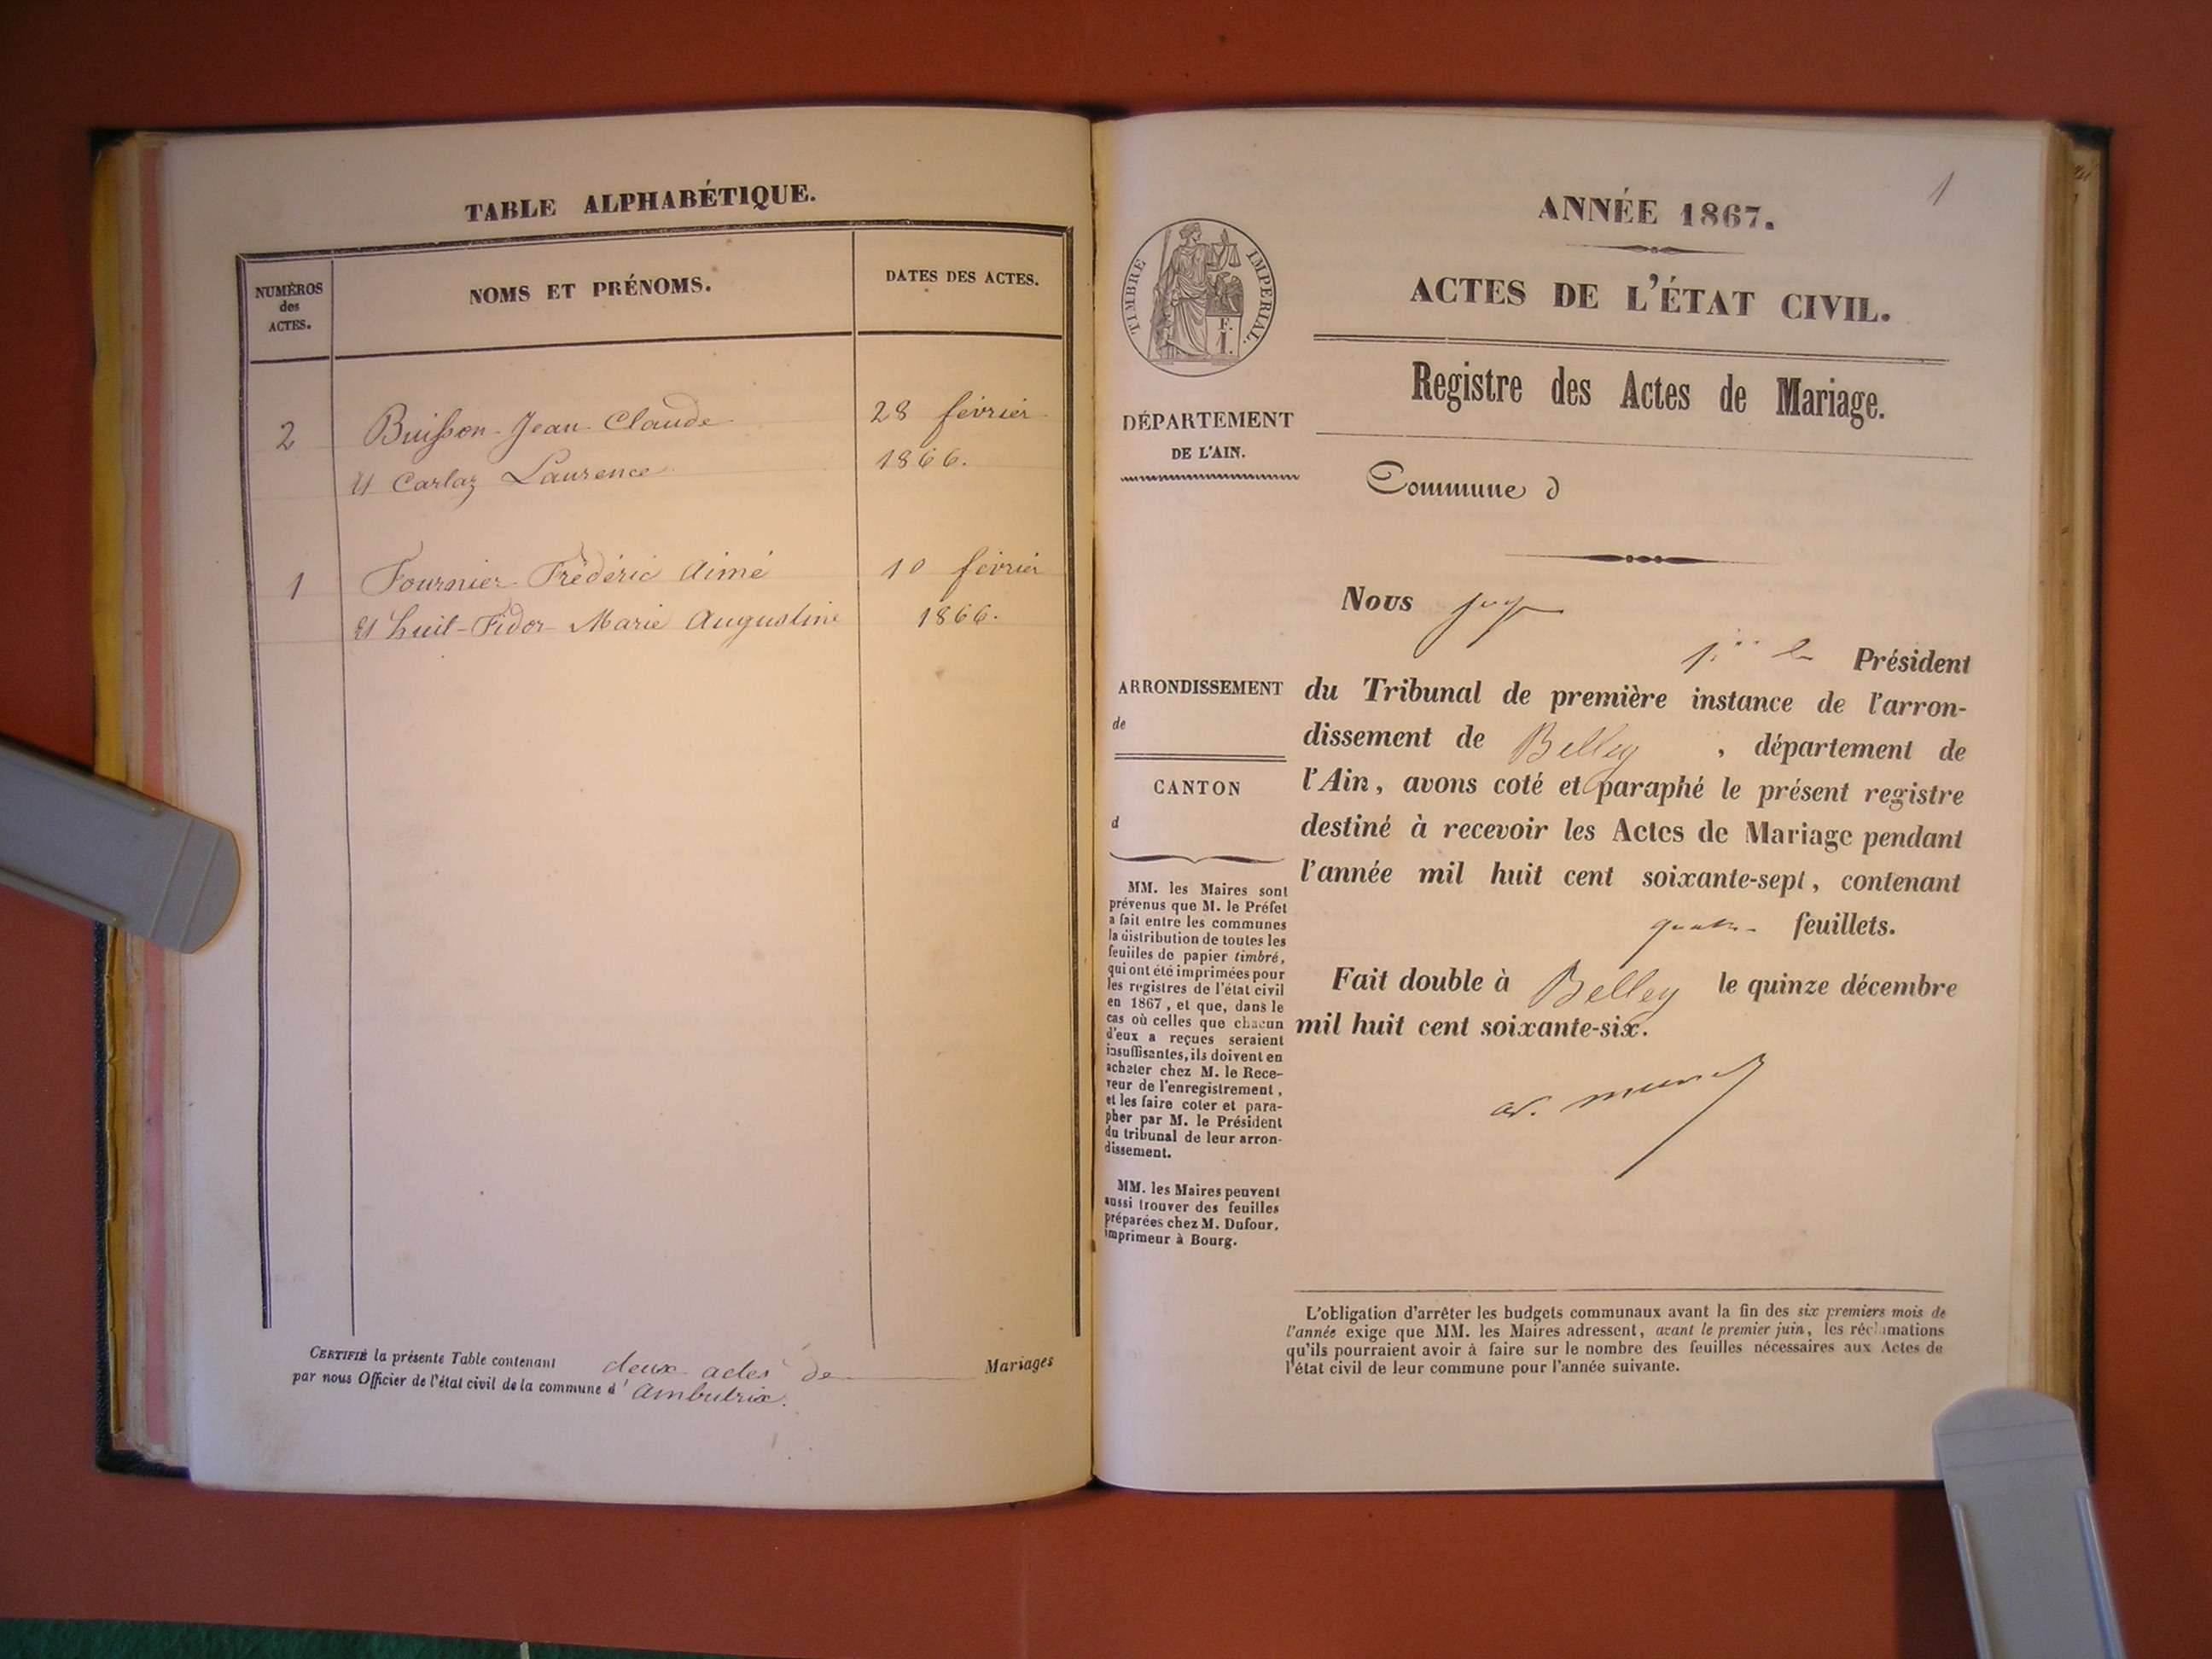 TABLE ALPHABÉTIQUE.
NUMÉROS
des
ACTES.
NOMS ET PRÉNOMS.
DATES DES ACTES.
2
Buisson Jean Claude
28 février
Et Carlaz Laurence
1866.
1
Fournier Frédéric Aimé
10 février
Et Marie Augustine
1866.
CERTIFIÉ la présente Table contenant deux actes de Mariages
par nous Officier de l'état civil de la commune d'Ambutrix.
1
ANNÉE 1867.
ACTES DE L'ÉTAT CIVIL.
TIMBRE IMPERIAL.
F.
1.
Registre des Actes de Mariage.
DÉPARTEMENT
DE L'AIN.
Commune d
Nous juge
Président
ARRONDISSEMENT
de
CANTON
d
du Tribunal de première instance de l'arron-
dissement de Belley , département de
l'Ain, avons coté et paraphé le présent registre
destiné à recevoir les Actes de Mariage pendant
l'année mil huit cent soixante-sept, contenant
quatre feuillets.
Fait double à Belley le quinze décembre
mil huit cent soixante-six.
MM. les Maires sont
prévenus que M. le Préfet
a fait entre les communes
la distribution de toutes les
feuilles de papier timbré,
qui ont été imprimées pour
les registres de l'état civil
en 1867, et que, dans le
cas où celles que chacun
d'eux a reçues seraient
insuffisantes, ils doivent en
acheter chez M. le Rece-
veur de l'enregistrement,
et les faire coter et para-
pher par M. le Président
du tribunal de leur arron-
dissement.
MM. les Maires peuvent
aussi trouver des feuilles
préparées chez M. Dufour,
imprimeur à Bourg.
L'obligation d'arrêter les budgets communaux avant la fin des six premiers mois de
l'année exige que MM. les Maires adressent, avant le premier juin, les réclamations
qu'ils pourraient avoir à faire sur le nombre des feuilles nécessaires aux Actes de
l'état civil de leur commune pour l'année suivante.